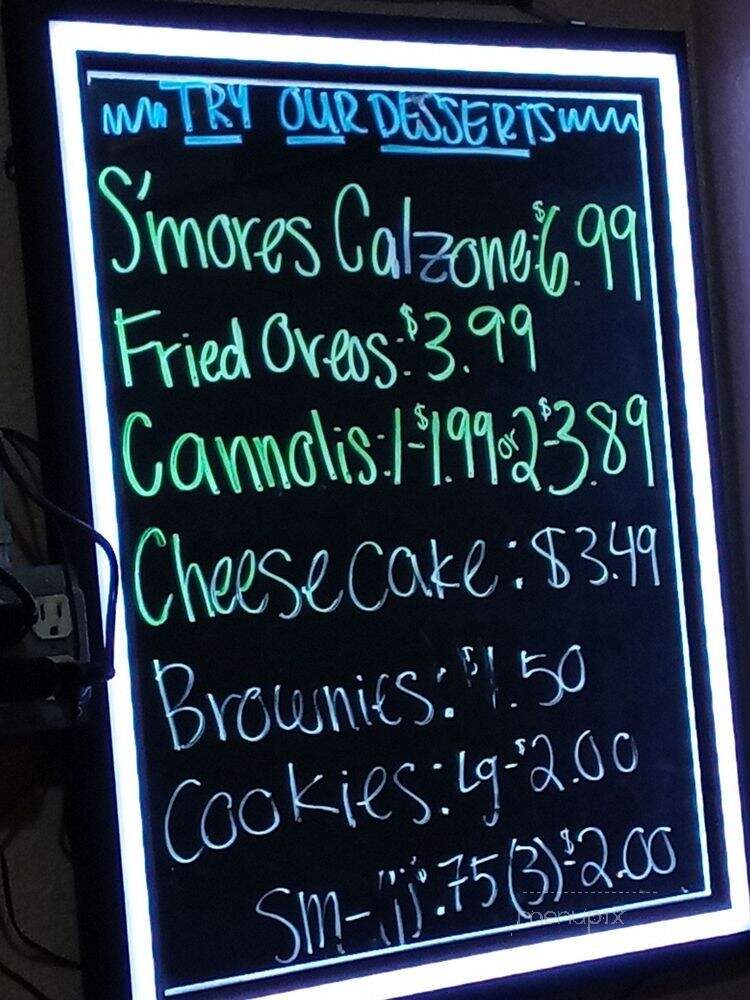 TRY OUR DESSERTS
S'mores Calzone: $6.99
Fried Oreos: $3.99
Cannolis: 1-$1.99 or 2-$3.89
Cheesecake: $3.49
Brownies: $1.50
Cookies: Lg-$2.00
Sm- .75 (3)-$2.00
menupix